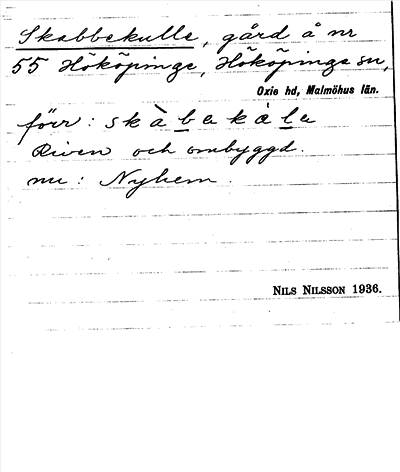 Skabbekulle, gård å nr
55 Hököpinge, Hököpinge sn,
Oxie hd, Malmöhus län.
förr: skàbakàla
Riven och ombyggd.
nu: Nyhem.
NILS NILSSON 1936.